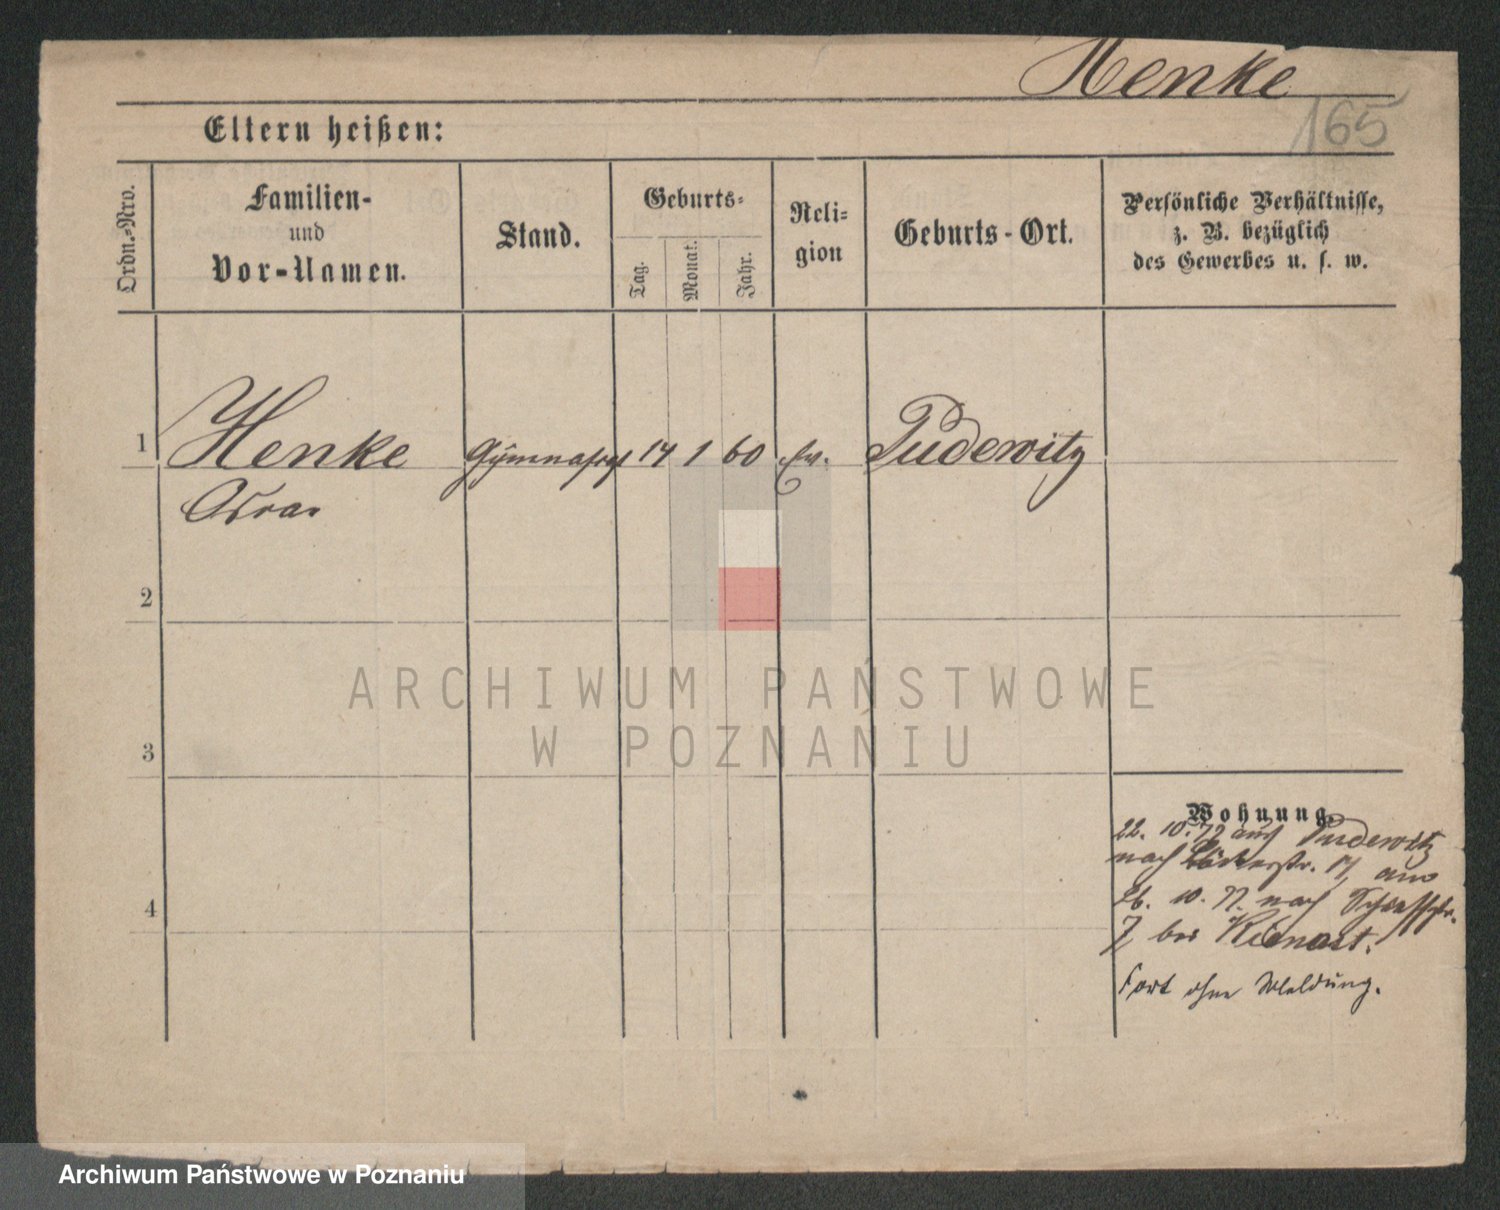 Henke
165
Eltern heißen:
Ordn.-Nro.
Familien-
und
Vor-Namen.
Stand.
Geburts-
Tag.
Monat.
Jahr.
Reli-
gion
Geburts-Ort.
Persönliche Verhältnisse,
z. B. bezüglich
des Gewerbes u. s. w.
1
Henke
14
1
60
Ev.
Pudewitz
2
3
4
ARCHIWUM PAŃSTWOWE
W POZNANIU
Wohnung.
22. 10. 72 aus Pudewitz
nach
26. 10. 77. nach
7 bei
Fort ohne Meldung.
Archiwum Państwowe w Poznaniu